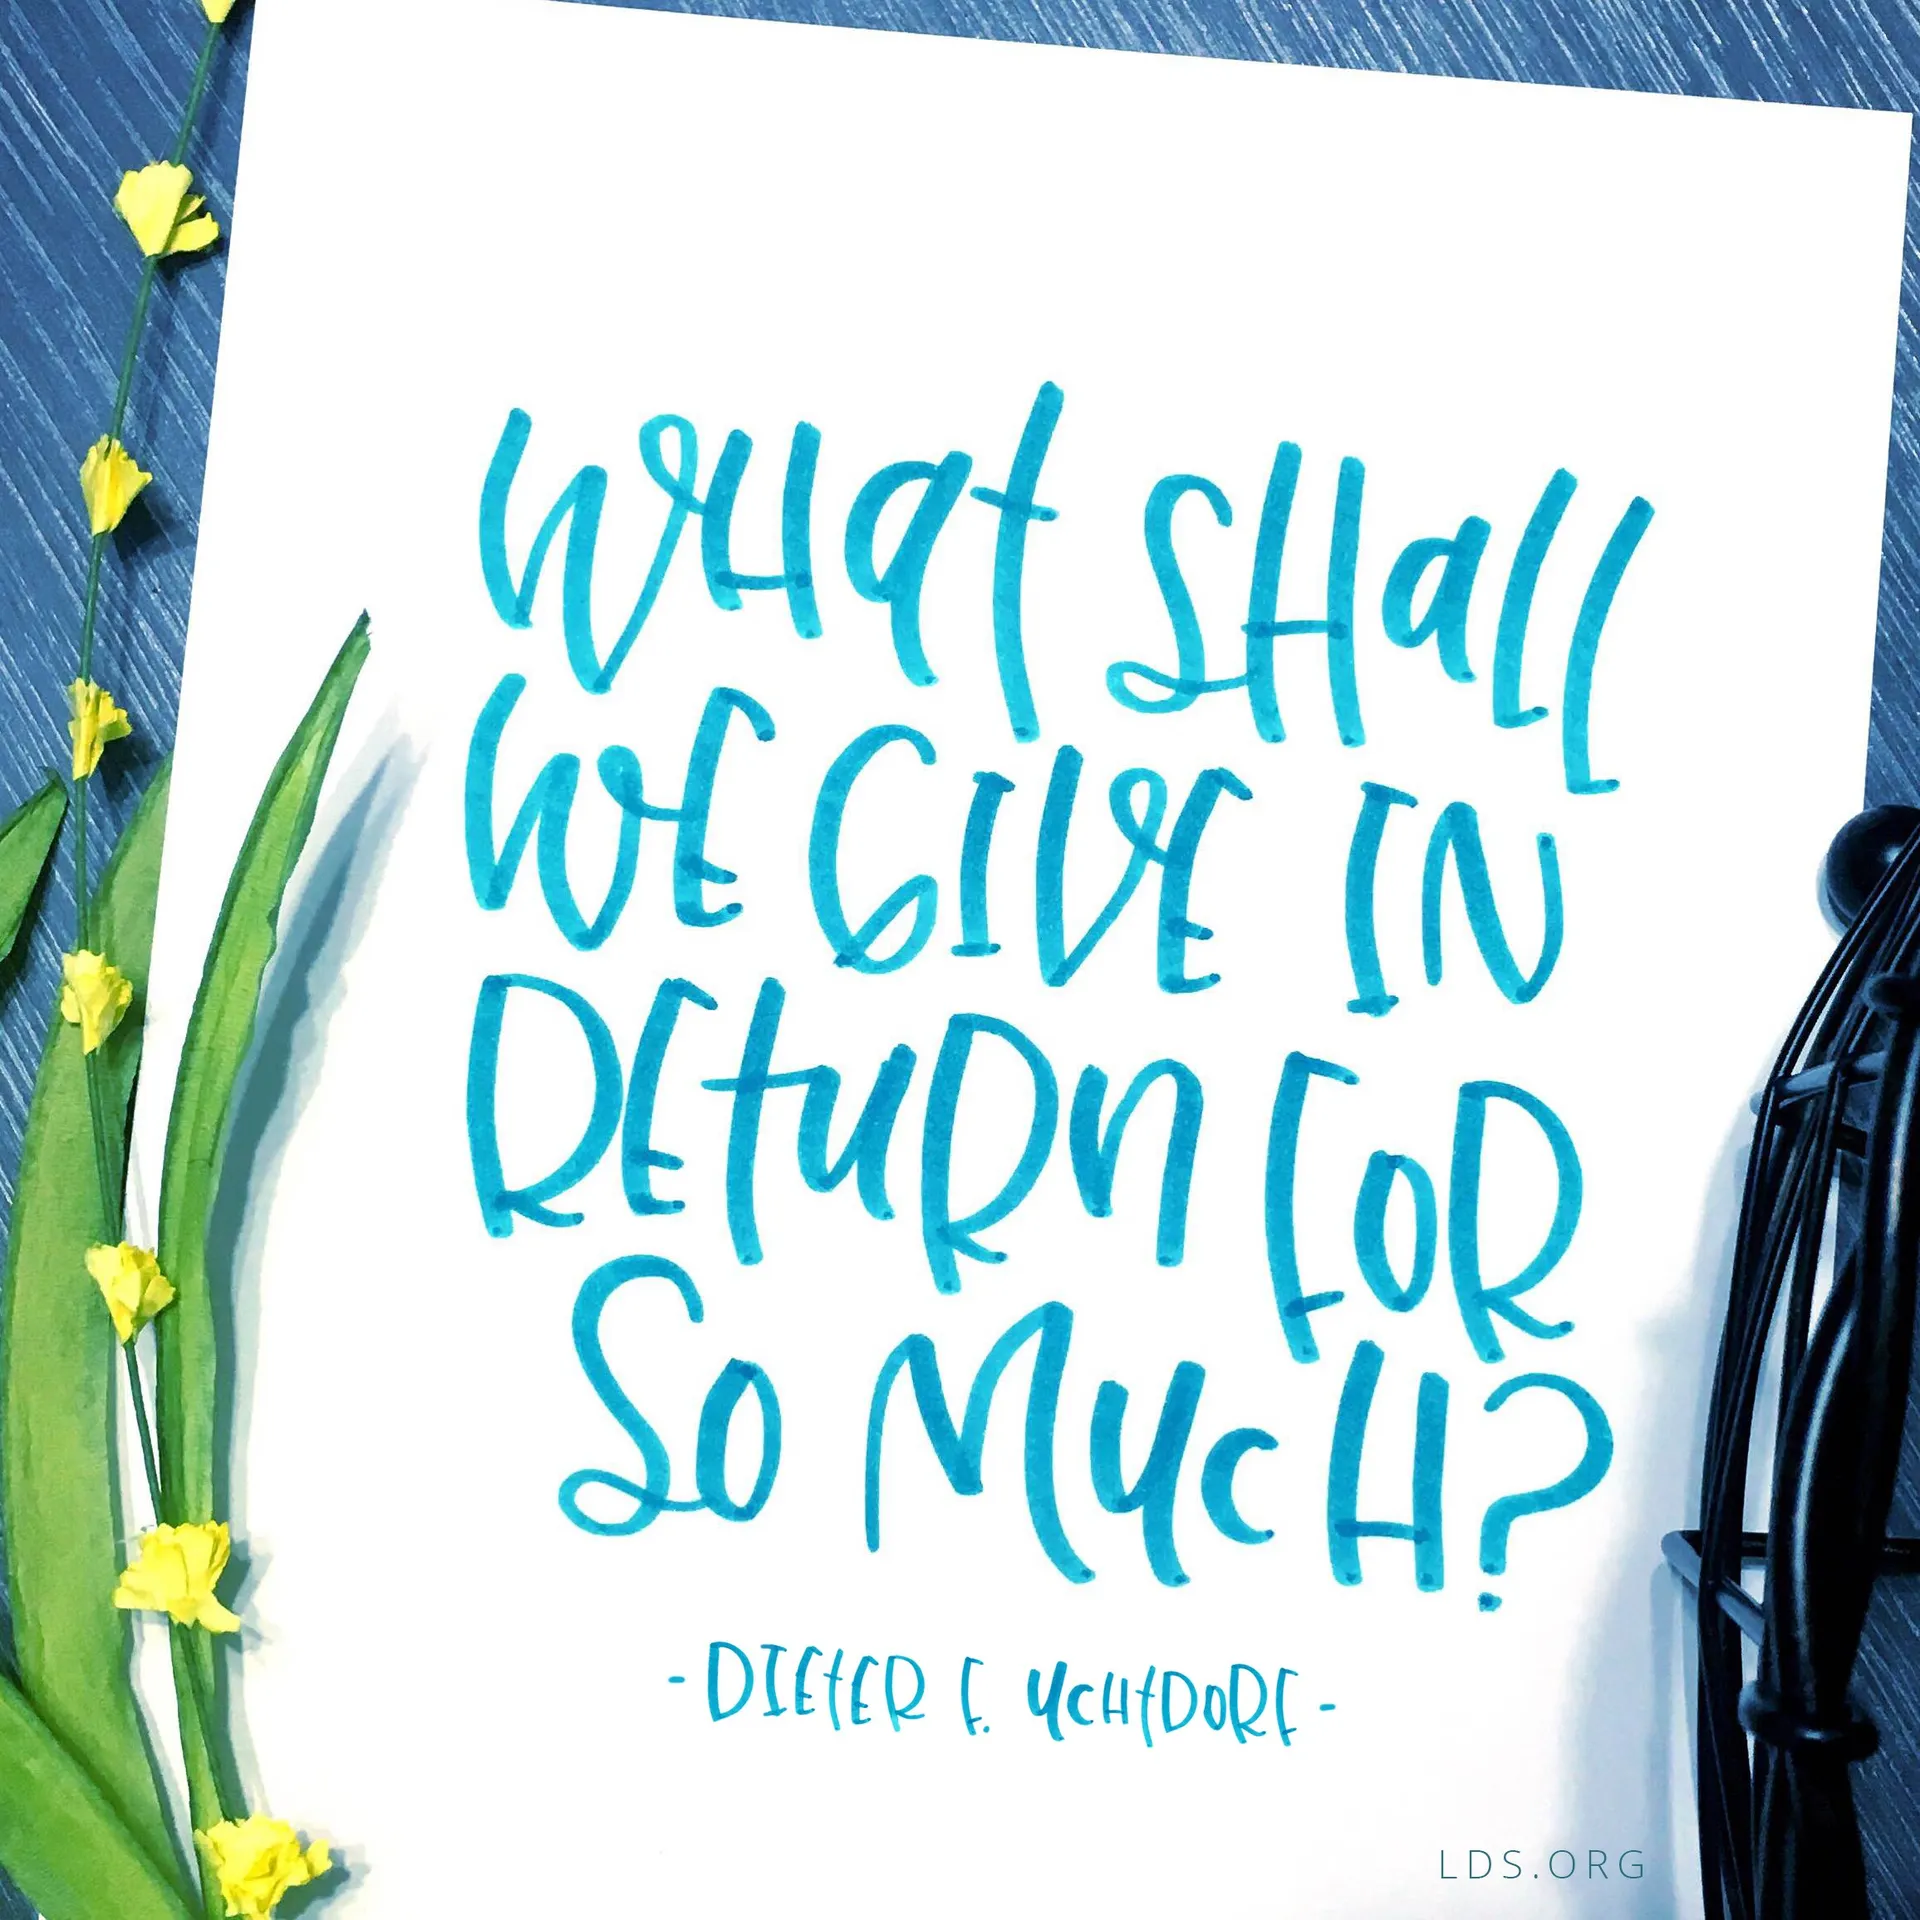 WHat SHall
WE GIVE IN
REtuRn FOR
SO MucH?
- DIEtER F. UcHtDORF -
LDS.ORG